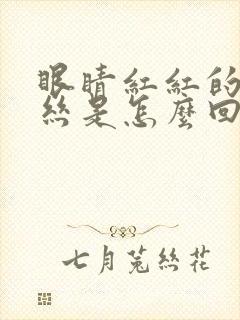 眼睛紅紅的
絲是怎麼回
七月菟絲花